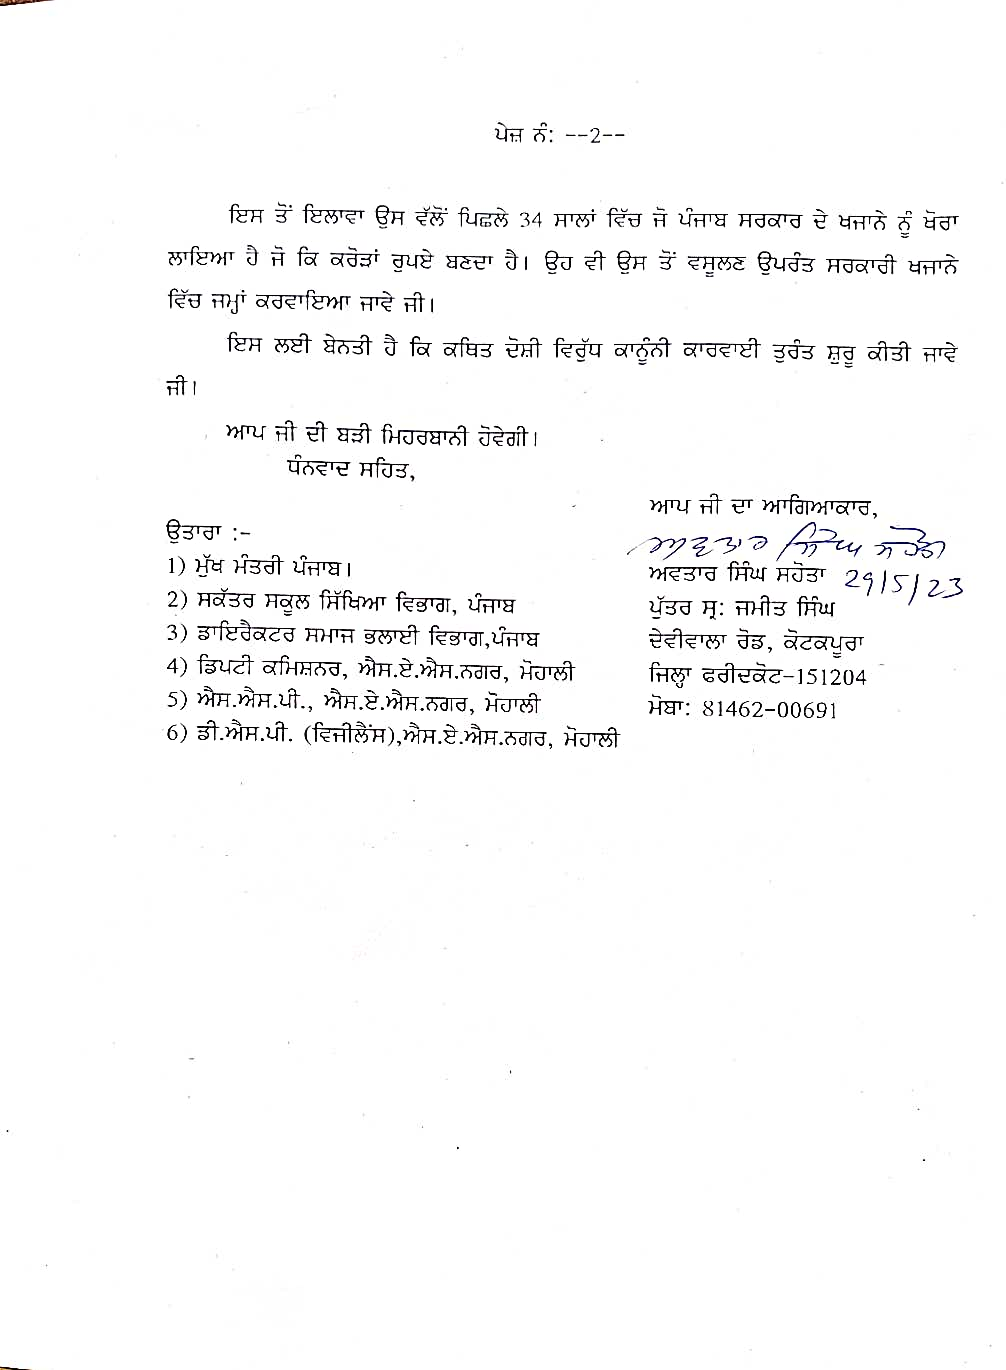 ਪੇਜ਼ ਨੰ: --2--
ਇਸ ਤੋਂ ਇਲਾਵਾ ਉਸ ਵੱਲੋਂ ਪਿਛਲੇ 34 ਸਾਲਾਂ ਵਿੱਚ ਜੋ ਪੰਜਾਬ ਸਰਕਾਰ ਦੇ ਖਜਾਨੇ ਨੂੰ ਖੋਰਾ
ਲਾਇਆ ਹੈ ਜੋ ਕਿ ਕਰੋੜਾਂ ਰੁਪਏ ਬਣਦਾ ਹੈ। ਉਹ ਵੀ ਉਸ ਤੋਂ ਵਸੂਲਣ ਉਪਰੰਤ ਸਰਕਾਰੀ ਖਜਾਨੇ
ਵਿੱਚ ਜਮ੍ਹਾਂ ਕਰਵਾਇਆ ਜਾਵੇ ਜੀ।
ਇਸ ਲਈ ਬੇਨਤੀ ਹੈ ਕਿ ਕਥਿਤ ਦੋਸ਼ੀ ਵਿਰੁੱਧ ਕਾਨੂੰਨੀ ਕਾਰਵਾਈ ਤੁਰੰਤ ਸ਼ੁਰੂ ਕੀਤੀ ਜਾਵੇ
ਜੀ।
ਆਪ ਜੀ ਦੀ ਬੜੀ ਮਿਹਰਬਾਨੀ ਹੋਵੇਗੀ।
ਧੰਨਵਾਦ ਸਹਿਤ,
ਆਪ ਜੀ ਦਾ ਆਗਿਆਕਾਰ,
ਅਵਤਾਰ ਸਿੰਘ ਸਹੋਤਾ
ਅਵਤਾਰ ਸਿੰਘ ਸਹੋਤਾ 29/5/23
ਪੁੱਤਰ ਸ੍ਰ: ਜਮੀਤ ਸਿੰਘ
ਦੇਵੀਵਾਲਾ ਰੋਡ, ਕੋਟਕਪੂਰਾ
ਜਿਲ੍ਹਾ ਫਰੀਦਕੋਟ-151204
ਮੋਬਾ: 81462-00691
ਉਤਾਰਾ :-
1) ਮੁੱਖ ਮੰਤਰੀ ਪੰਜਾਬ।
2) ਸਕੱਤਰ ਸਕੂਲ ਸਿੱਖਿਆ ਵਿਭਾਗ, ਪੰਜਾਬ
3) ਡਾਇਰੈਕਟਰ ਸਮਾਜ ਭਲਾਈ ਵਿਭਾਗ,ਪੰਜਾਬ
4) ਡਿਪਟੀ ਕਮਿਸ਼ਨਰ, ਐਸ.ਏ.ਐਸ.ਨਗਰ, ਮੋਹਾਲੀ
5) ਐਸ.ਐਸ.ਪੀ., ਐਸ.ਏ.ਐਸ.ਨਗਰ, ਮੋਹਾਲੀ
6) ਡੀ.ਐਸ.ਪੀ. (ਵਿਜੀਲੈਂਸ),ਐਸ.ਏ.ਐਸ.ਨਗਰ, ਮੋਹਾਲੀ